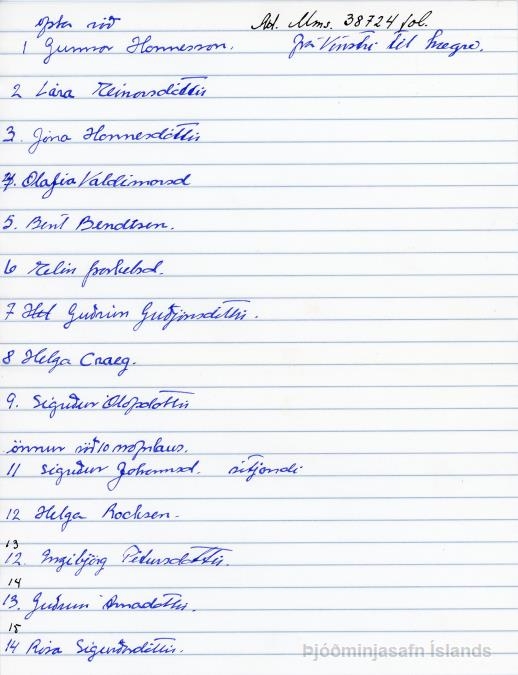 Ad. Mms. 38724 fol.
opta röð
1 Gunnar Hannesson. frá Vinstri til hægri.
2 Lára Einarsdóttir
3. Jóna Hannesdóttir
4. Olafia Valdimarsd
5. Bent Bendtsen.
6 Elin Þorkelsd.
7 Guðrún Guðjónsdóttir.
8 Helga Craeg.
9. Sigriður Olafsdóttir
önnur röð 10 nafnlaus.
11 Sigriður Johannsd. sitjandi
12 Helga Rocksen.
13
12. Ingibjörg Pétursdóttir.
14
13. Guðrun Arnadóttir.
15
14 Rósa Sigurðardóttir.
Þjóðminjasafn Íslands